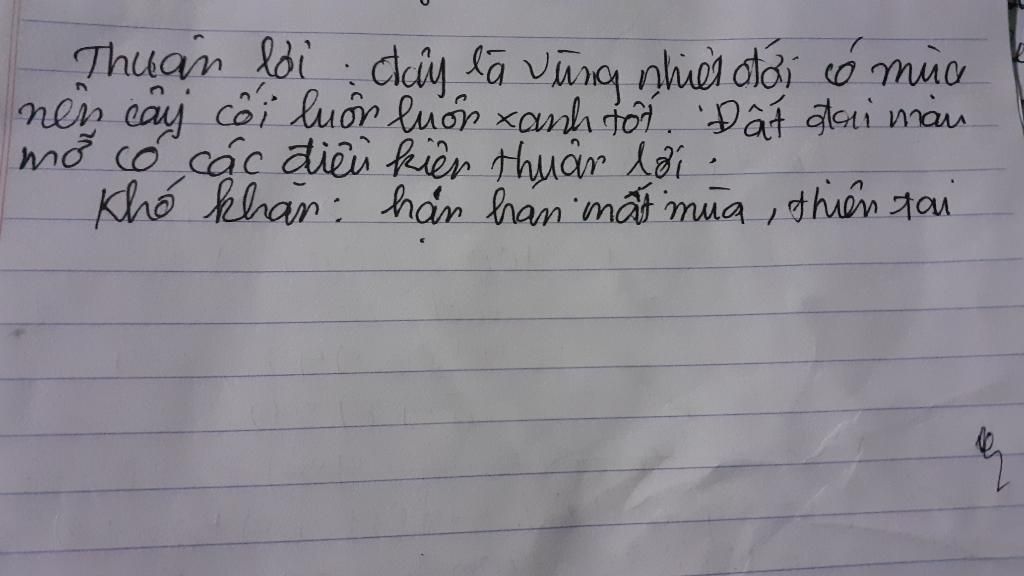 Thuận lợi : đây là vùng nhiệt đới có mùa
nên cây cối luôn luôn xanh tốt. Đất đai màu
mỡ có các điều kiện thuận lợi.
Khó khăn: hán hạn mất mùa, thiên tai